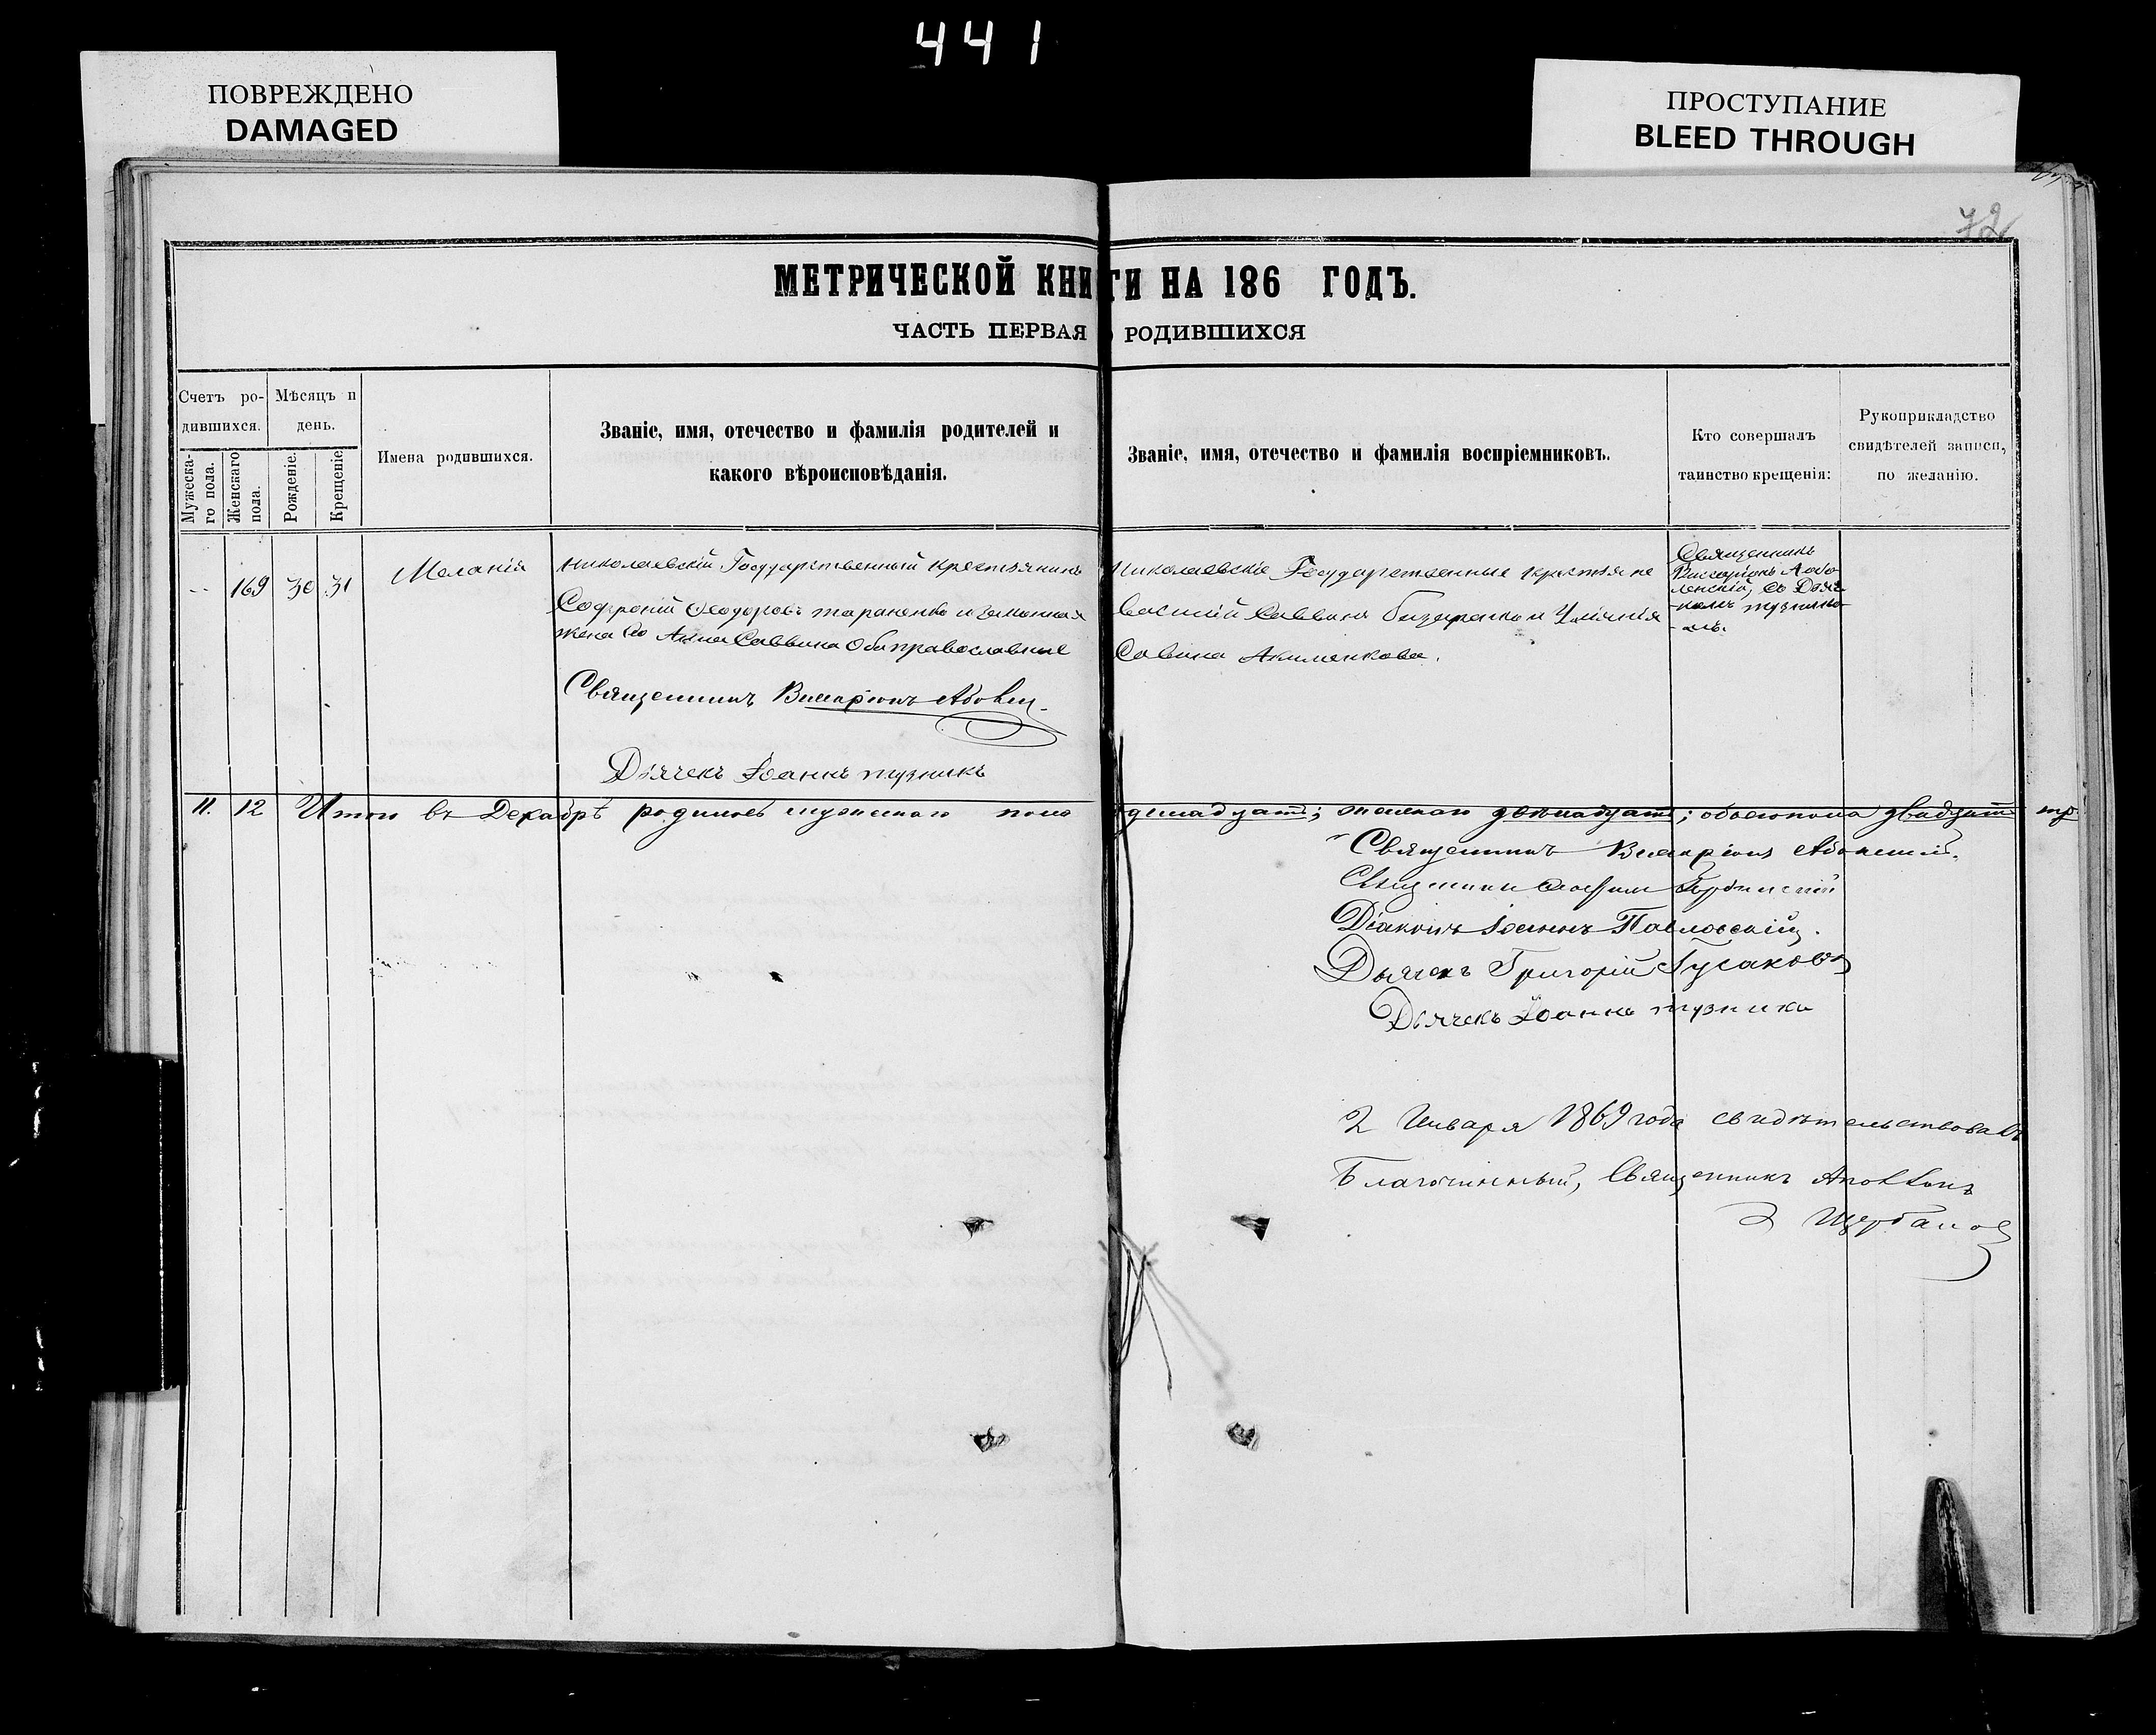 441
ПОВРЕЖДЕНО
DAMAGED
ПРОСТУПАНИЕ
BLEED THROUGH
72
МЕТРИЧЕСКОЙ КНИГИ НА 186 ГОДЪ.
ЧАСТЬ ПЕРВАЯ РОДИВШИХСЯ
Счетъ ро-
дившихся.
Мужеска-
го пола.
Женскаго
пола.
Мѣсяцъ и
день.
Рожденіе.
Крещеніе
Имена родившихся.
Званіе, имя, отечество и фамилія родителей и
какого вѣроисповѣданія.
Званіе, имя, отечество и фамилія воспріемниковъ.
Кто совершалъ
таинство крещенія:
Рукоприкладство
свидѣтелей записи,
по желанію.
-- 169 30 31 Меланія
Николаевскій Государственный крестьянинъ
Софроній Ѳеодоровъ тараненко и законная
жена его Анна Саввина Оба православные
Священникъ Виссаріонъ
Дьячекъ Іоаннъ тузникъ
Николаевскіе Государственные крестьяне
Василій Саввинъ и
Савина Акименкова.
Священникъ
Виссаріонъ
съ Дьяч-
-комъ тузнико-
-мъ.
11. 12 Итого въ Декабрѣ родилось мужескаго пола
одинадцать; женскаго двѣнадцать; обоего пола двадцать тр
Священникъ Виссаріонъ
Священникъ
Діаконъ Іоаннъ Павловскій.
Дьячекъ Григорій Гусаковъ
Дьячекъ Іоаннъ тузникъ
2 Января 1869 года свидѣтельствовалъ
Благочинный, Священникъ Аполлонъ
Щербаковъ